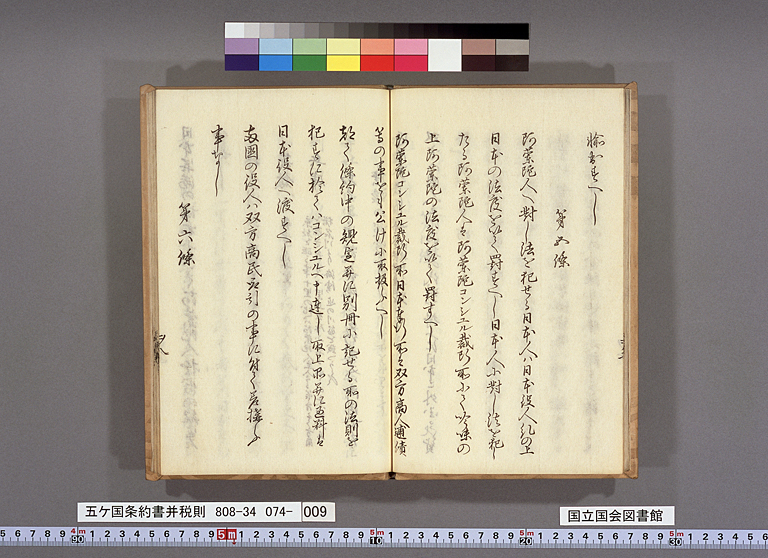 愉お春へし
第五條
阿蘭陀人へ對し法を犯せる日本人ハ日本役人糺の上
日本の法度を以て罸春へし日本人小對し法を犯し
たる阿蘭陀人ハ阿蘭陀コンシユル裁断所小て吟味の
上阿蘭陀の法度を以て罸すへし
阿蘭陀コンシユル裁断所日本奉行所ハ双方商人逋債
等の事をも公けニ取扱ふへし
都て條約中の規定并に別冊に記せる所の法則を
犯すに於てハコンシユルへ申達し取上品并に過料ハ
日本役人へ渡すへし
両國の役人ハ双方商民取引の事に付て差構ふ
事なし
第六條
五ケ国条約書并税則 808-34 074- 009
国立国会図書館